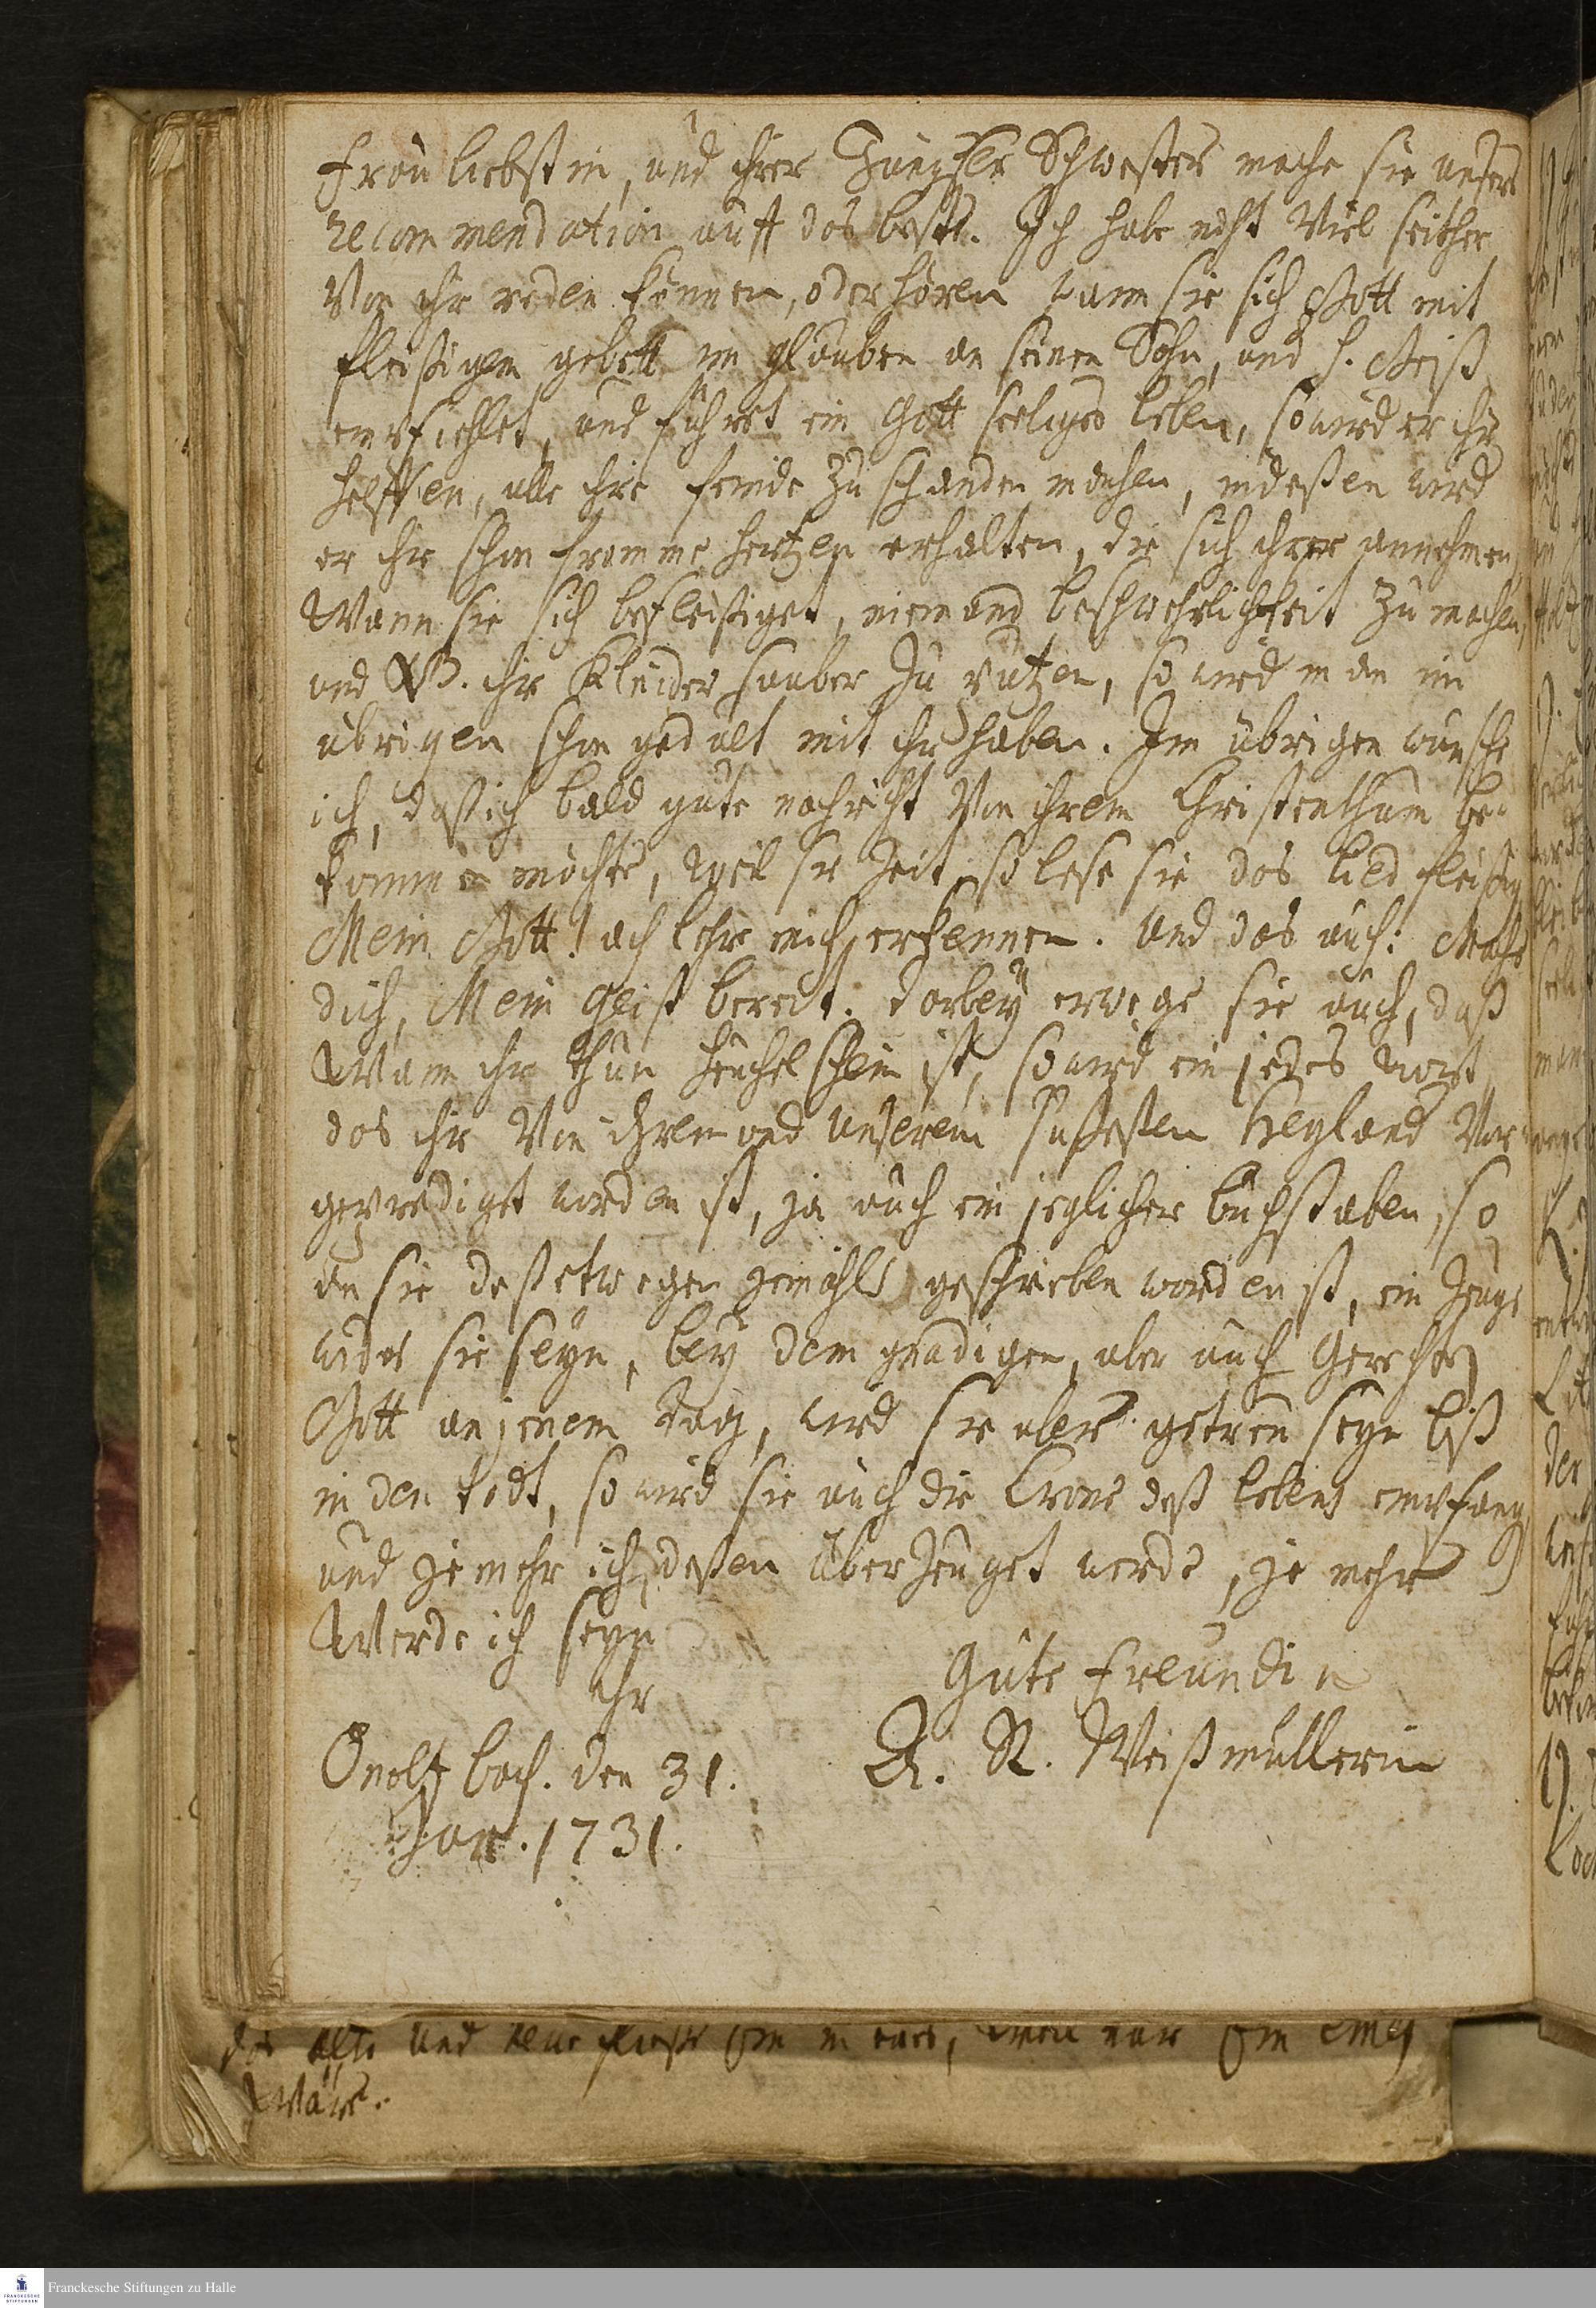 Frau liebstin, und ihrer Jungfer Schwester mache sie unsere
recommendation auff das beste. Ich habe nicht Viel seither
Von ihr reden können, oder hören wann sie sich Gott mit
fleißigem gebett im glauben an seinen Sohn, und h. Geist
empfiehlet, und führet ein Gott seeliges leben, so wird er ihr
helffen, alle ihre feinde zu schanden machen, indeßen wird
er ihr schon fromme hertzen erhalten, die sich ihrer annehmen,
Wann sie sich befleißiget, niemand beschwehrlichkeit zu machen,
und ihr Kleider sauber zu putzen, so wird man im
übrigen schon gedult mit ihr haben. Im übrigen wünsche
ich, daß ich bald gute nachricht Von ihrem Christenthum be-
kommen möchte, weil sie Zeit so lese sie das lied fleißig
Mein Gott! ach lehre mich erkennen. und das auch: Mache
dich, Mein Geist bereit. darbey erwege sie auch, daß
Wann ihr thun heuchelschein ist, so wird ein jedes wort
das ihr Von ihrem und unserem süßesten Heyland Vor
geprediget worden ist, ja auch ein jeglicher buchstaben, so
an sie deßetwegen gemahlt geschrieben worden ist, ein Zeuge
wider sie seyn, bey dem gnädigen, aber auch Gerechten
Gott an jenem tag, wird sie aber getreu seyn biß
in den todt, so wird sie auch die Crone deß lebens empfangen
und je mehr ich deßen überzeuget werde, je mehr
Werde ich seyn
ihr
Gute Freundin
Onoltzbach. den 31.
A. R. Weißmüllerin
Jan. 1731.
das alte und neue
Wäre.